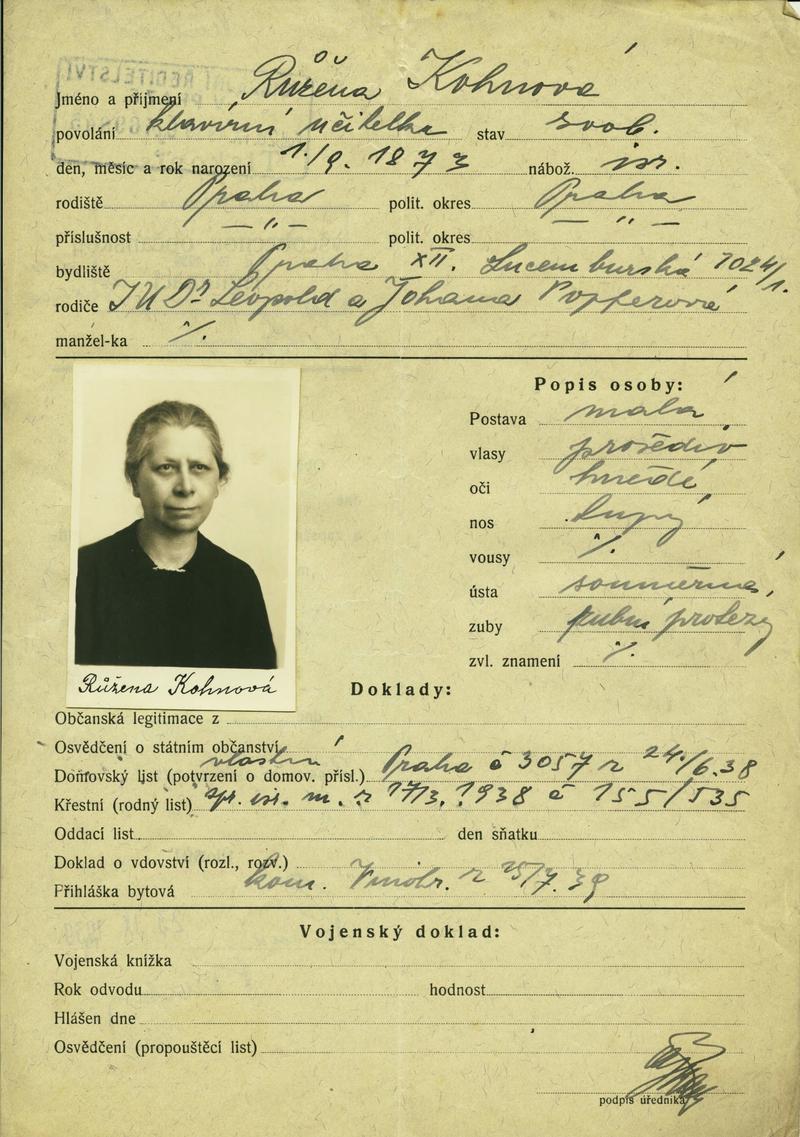 Jméno a příjmení Růžena Kohnová
povolání klavírní učitelka stav svob.
den, měsíc a rok narození 1./9. 1873 nábož. isr.
rodiště Praha polit. okres Praha
příslušnost — " — polit. okres — " —
bydliště Praha XII. Lucemburská 1024/1.
rodiče JUDr Leopold a Johana Popperová
manžel-ka %.
Popis osoby:
Postava malá
vlasy prošediv
oči hnědé
nos tupý
vousy %.
ústa souměrná
zuby zubní protézy
zvl. znamení %.
Růžena Kohnová
Doklady:
Občanská legitimace z
Osvědčení o státním občanství
vlastní
Domovský list (potvrzení o domov. přísl.) Praha č 3057 z 24./6.38
Křestní (rodný list) žp. isr. m. z 17/3. 1938 č 155/535
Oddací list den sňatku
Doklad o vdovství (rozl., rozv.)
Přihláška bytová kom. Vinohr. z 25/7. 39
Vojenský doklad:
Vojenská knížka
Rok odvodu hodnost
Hlášen dne
Osvědčení (propouštěcí list)
podpis úředníka